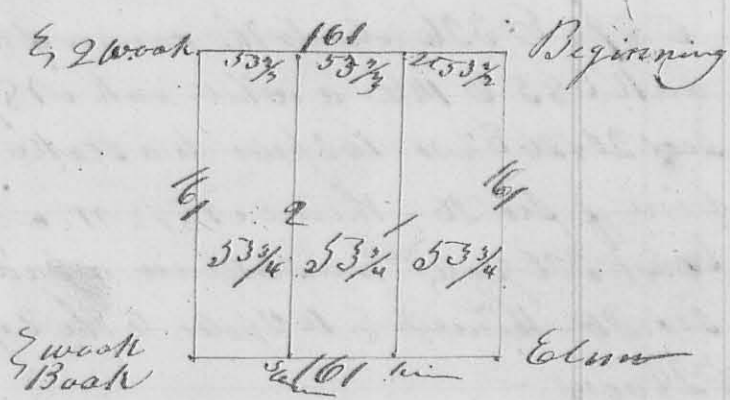 161
2 W oak
Beginning
53 2/3 53 2/3 53 2/3
161 161
2 1
53 3/4 53 3/4 53 3/4
W oak
B oak
161
Elm